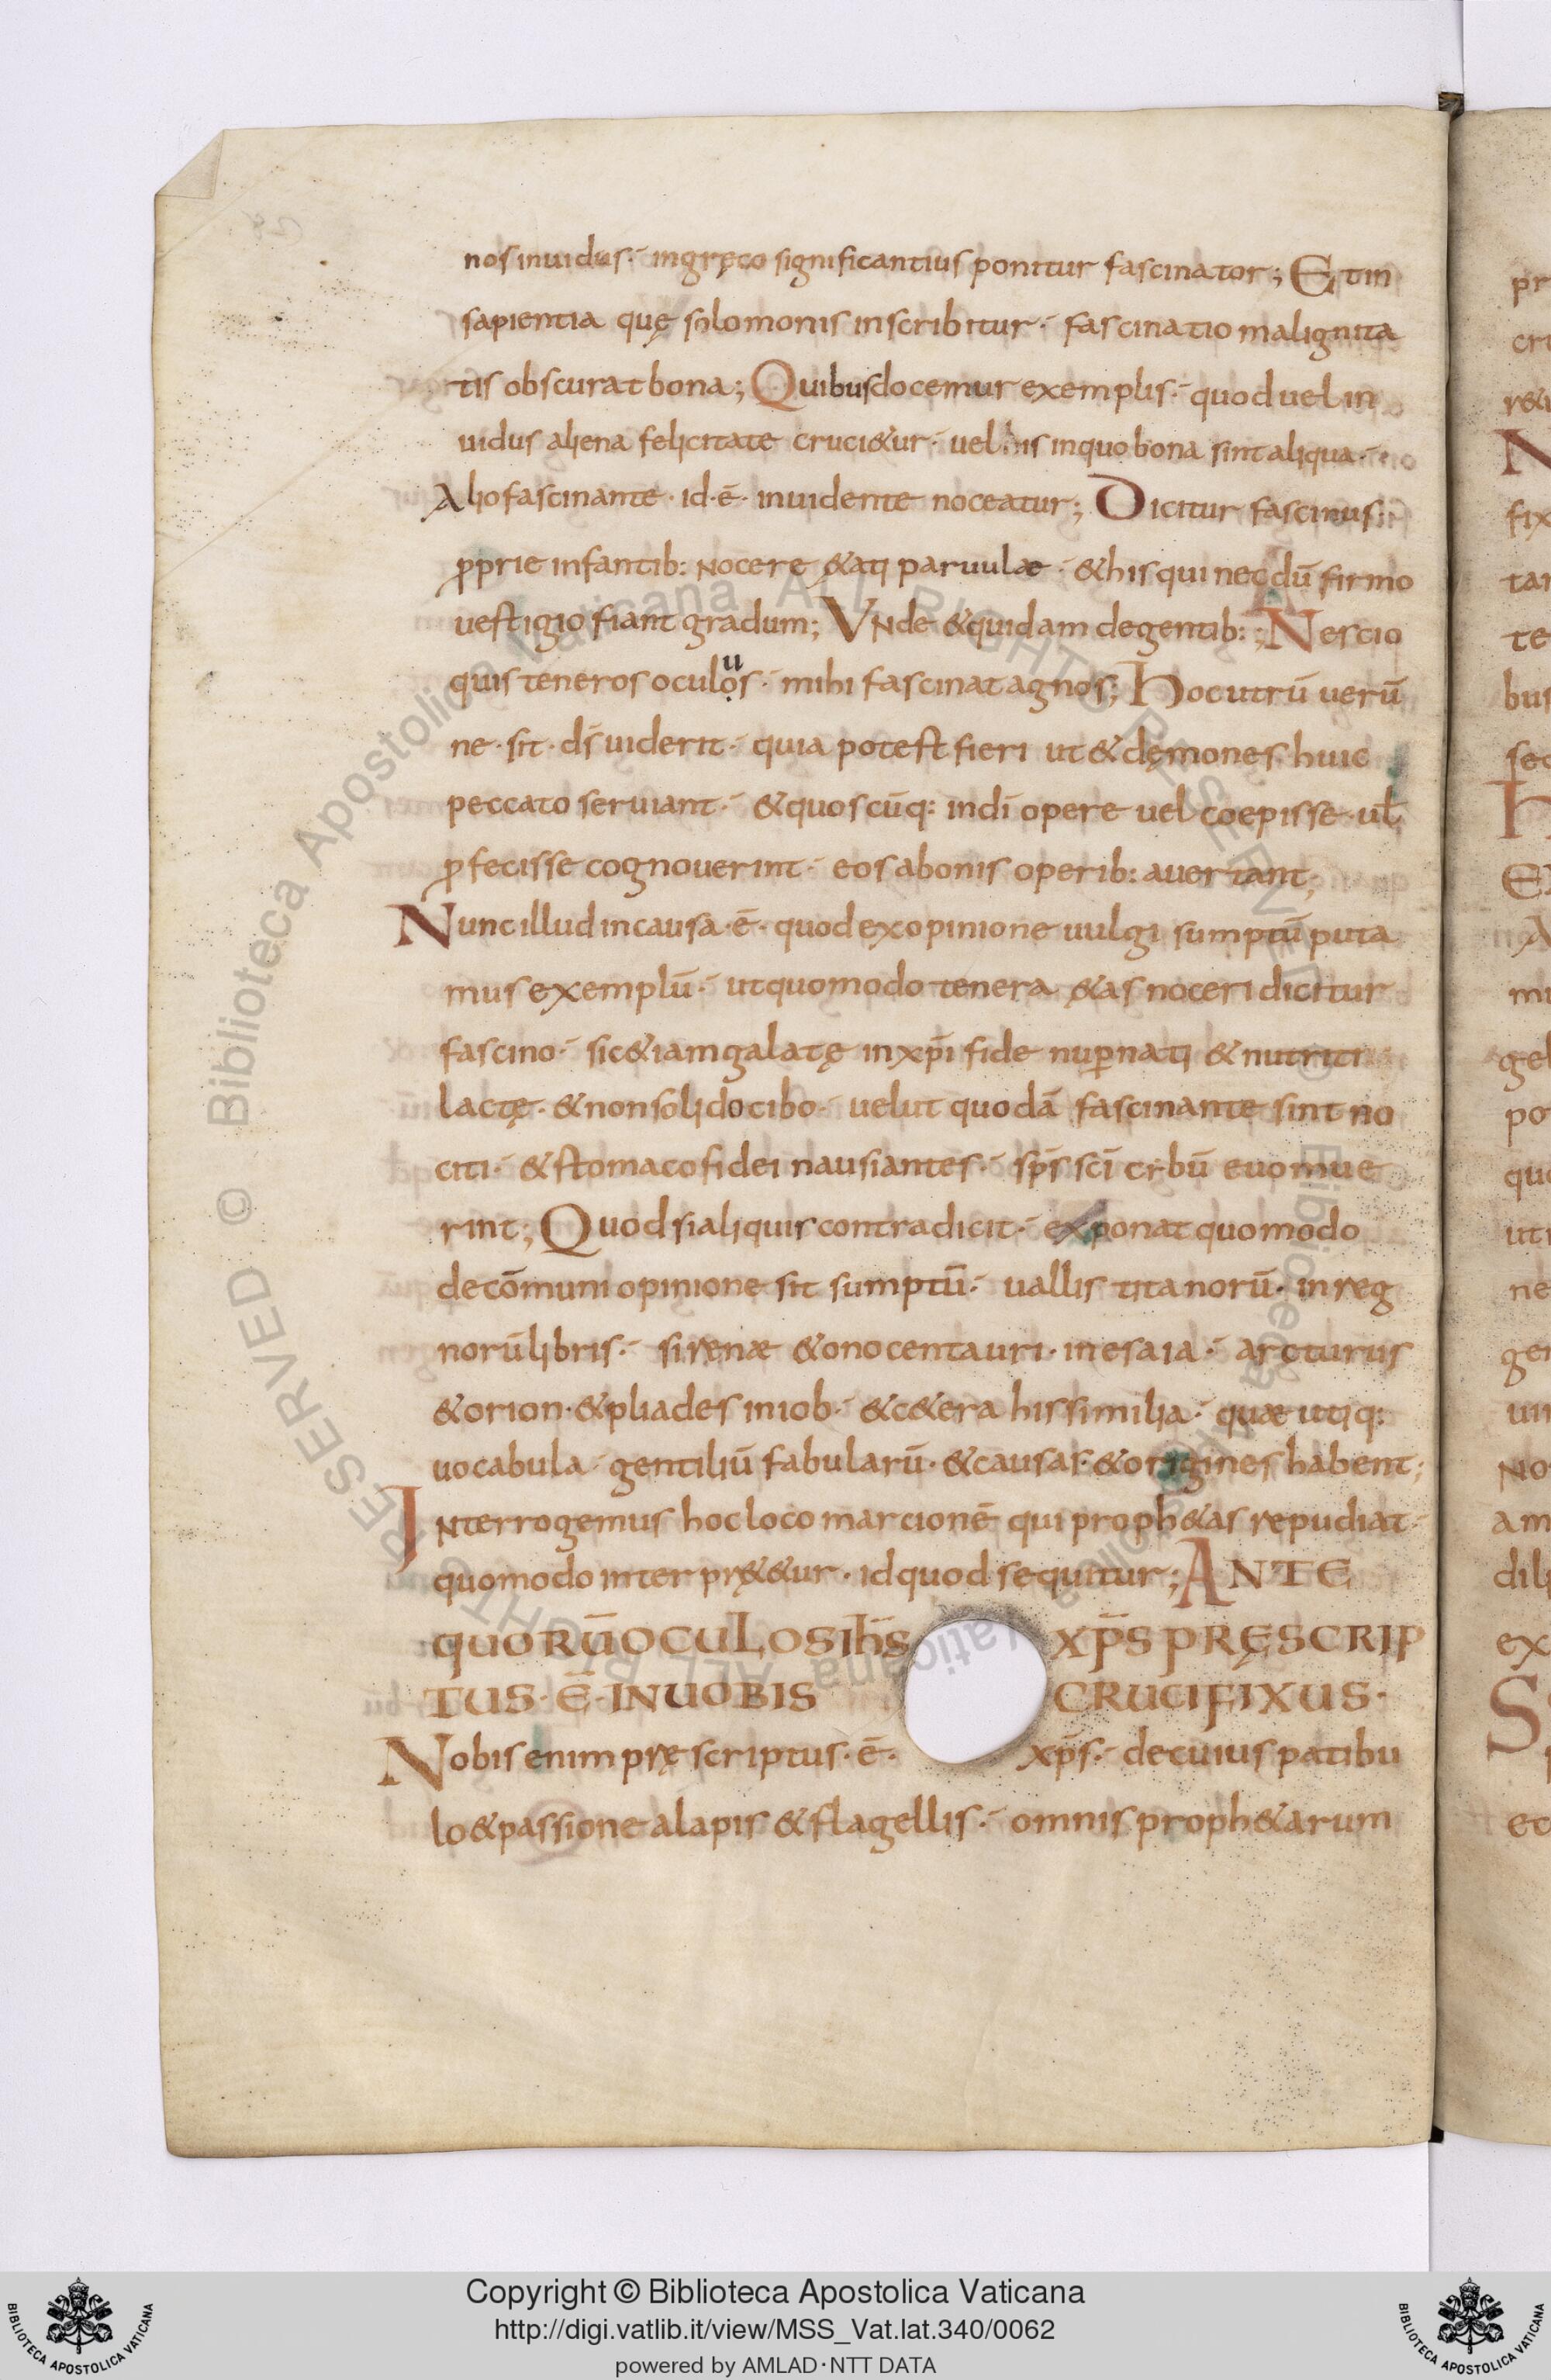 nos inuidus·⁊ in gręco significantius ponitur fascinator; Et in
sapientia quę solomonis inscribitur·⁊ fascinatio malignita
tis obscurat bona; Quibus docemur exemplis·⁊ quod uel in
uidus aliena felicitate cruci&ur·⁊ uel his in quo bona sint aliqua·
Alio fascinante· id·ē· inuidente noceatur; Dicitur fascinus
ꝓprie infantib: Nocere &ati paruulae·⁊ & his qui necdū firmo
uestigio fiant gradum; VNde & quidam de gentib:; Nescio
quis teneros oculọs·⁊ mihi fascinat agnos; Hoc utrū uerū
ne·sit· dī uiderit·⁊ quia potest fieri ut & dęmones huic
peccato seruiant·⁊ & quoscūq: in dī opere uel coepisse· ul̄
ꝓfecisse cognouerint·⁊ eos a bonis operib: auertant;
Nunc illud in causa·ē· quod ex opinione uulgi sumptū puta
mus exemplū·⁊ ut quomodo tenera &as noceri dicitur
fascino·⁊ sic &iam galatę in xp̄i fide nuꝑ nati & nutriti
lactę· & non solido cibo·⁊ uelut quodā fascinante sint no
citi·⁊ & stomaco fidei nausiantes·⁊ sp̄s scī cibū euomue
rint; Quod si aliquis contradicit·⁊ exponat quomodo
de cōmuni opinione sit sumptū·⁊ uallis titanorū· in reg
norū libris·⁊ sirenae & onocentauri· in esaia·⁊ arcturus
& orion· & pliades in iob·⁊ & c&era his similia·⁊ quae utiq:
uocabula·⁊ gentiliū fabularū· & causas· & origines habent;
INterrogemus hoc loco marcionē qui proph&as repudiat·
quomodo interpręt&ur· id quod sequitur; ANTE
QUORŪ OCULOS IHS̄ XP̄S PRĘSCRIP
TUS·Ē·IN UOBIS CRUCIFIXUS·
Nobis enim pręscriptus·ē· xp̄s·⁊ de cuius patibu
lo & passione alapis & flagellis·⁊ omnis proph&arum
u
Copyright © Biblioteca Apostolica Vaticana
http://digi.vatlib.it/view/MSS_Vat.lat.340/0062
powered by AMLAD·NTT DATA
BIBLIOTECA APOSTOLICA VATICANA
BIBLIOTECA APOSTOLICA VATICANA